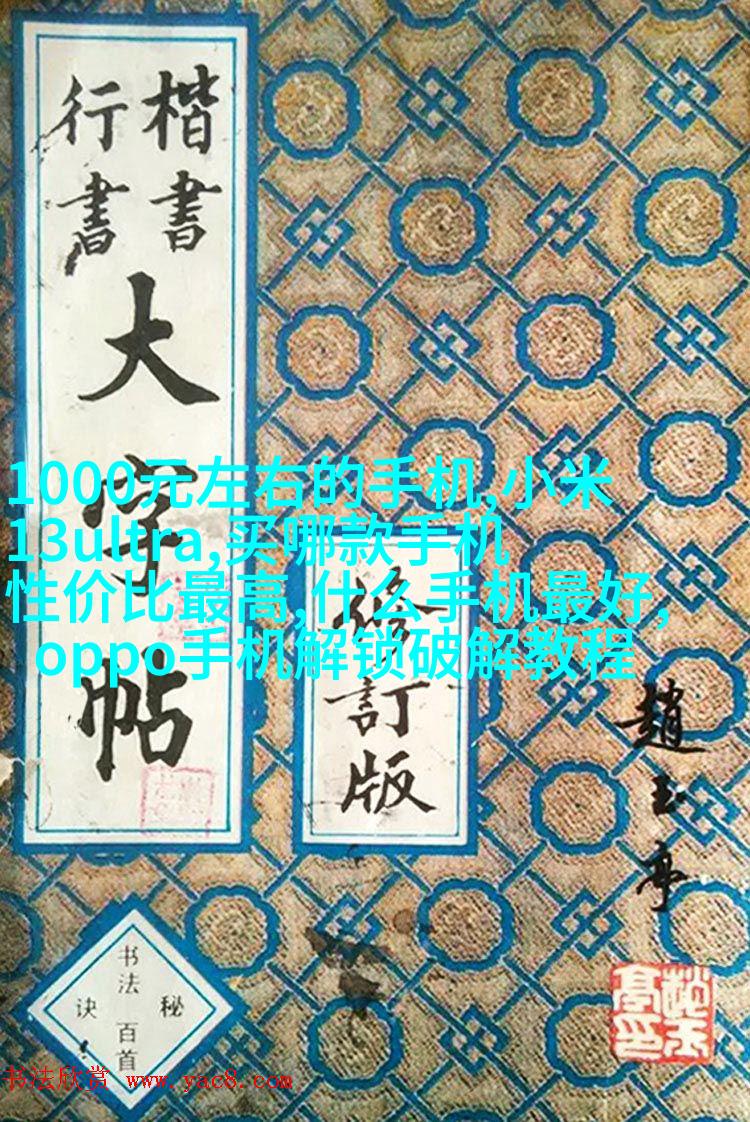 楷書
行書
大字帖
1000元左右的手机,小米
13ultra,买哪款手机
性价比最高,什么手机最好,
oppo手机解锁破解教程
修訂版
趙玉亭
书法百首
秘诀
书法欣赏 www.yac8.com